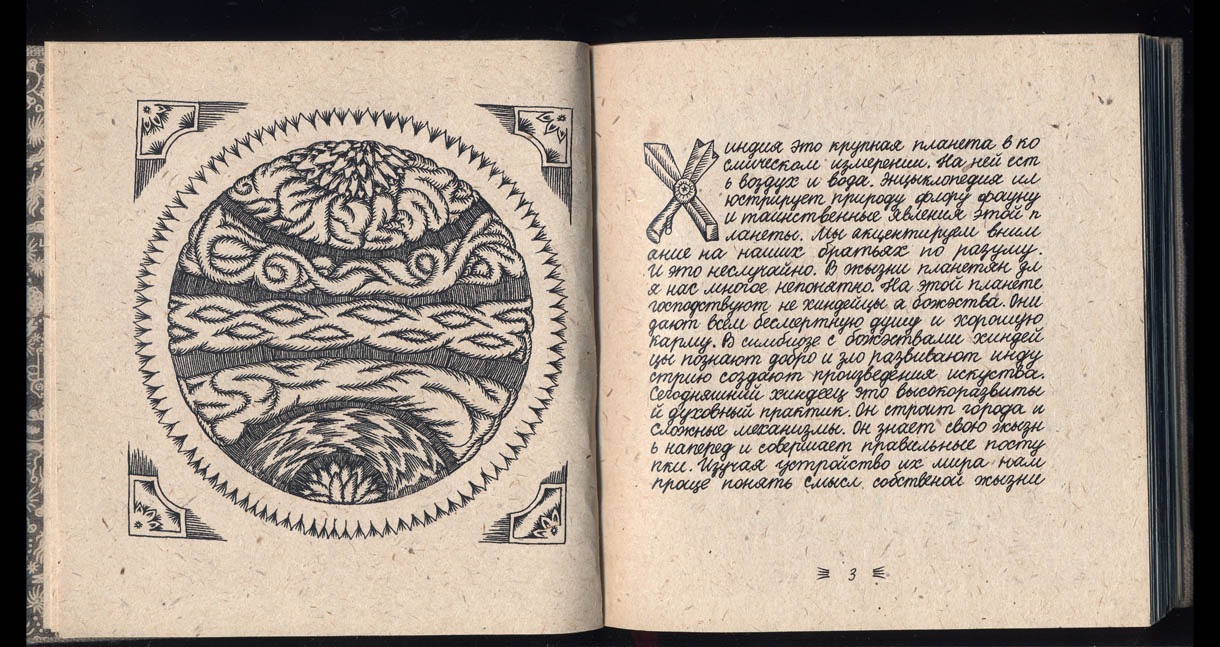 Хиндия это крупная планета в ко
смическом измерении. На ней ест
ь воздух и вода. Энцыклопедия ил
юстрирует природу флору фауну
и таинственные явления этой п
ланеты. Мы акцентируем вним
ание на наших братьях по разуму.
И это неслучайно. В жызни планетян дл
я нас многое непонятно. На этой планете
господствуют не хиндейцы а божэства. Они
дают всем бесмертную душу и хорошую
карму. В симбиозе с божэствами хиндей
цы познают добро и зло развивают инду
стрию создают произведения искуства.
Сегодняшний хиндеец это высокоразвиты
й духовный практик. Он строит города и
сложные механизмы. Он знает свою жызн
ь наперед и совершает правильные посту
пки. Изучая устройство их мира нам
проще понять смысл собственой жызни
3